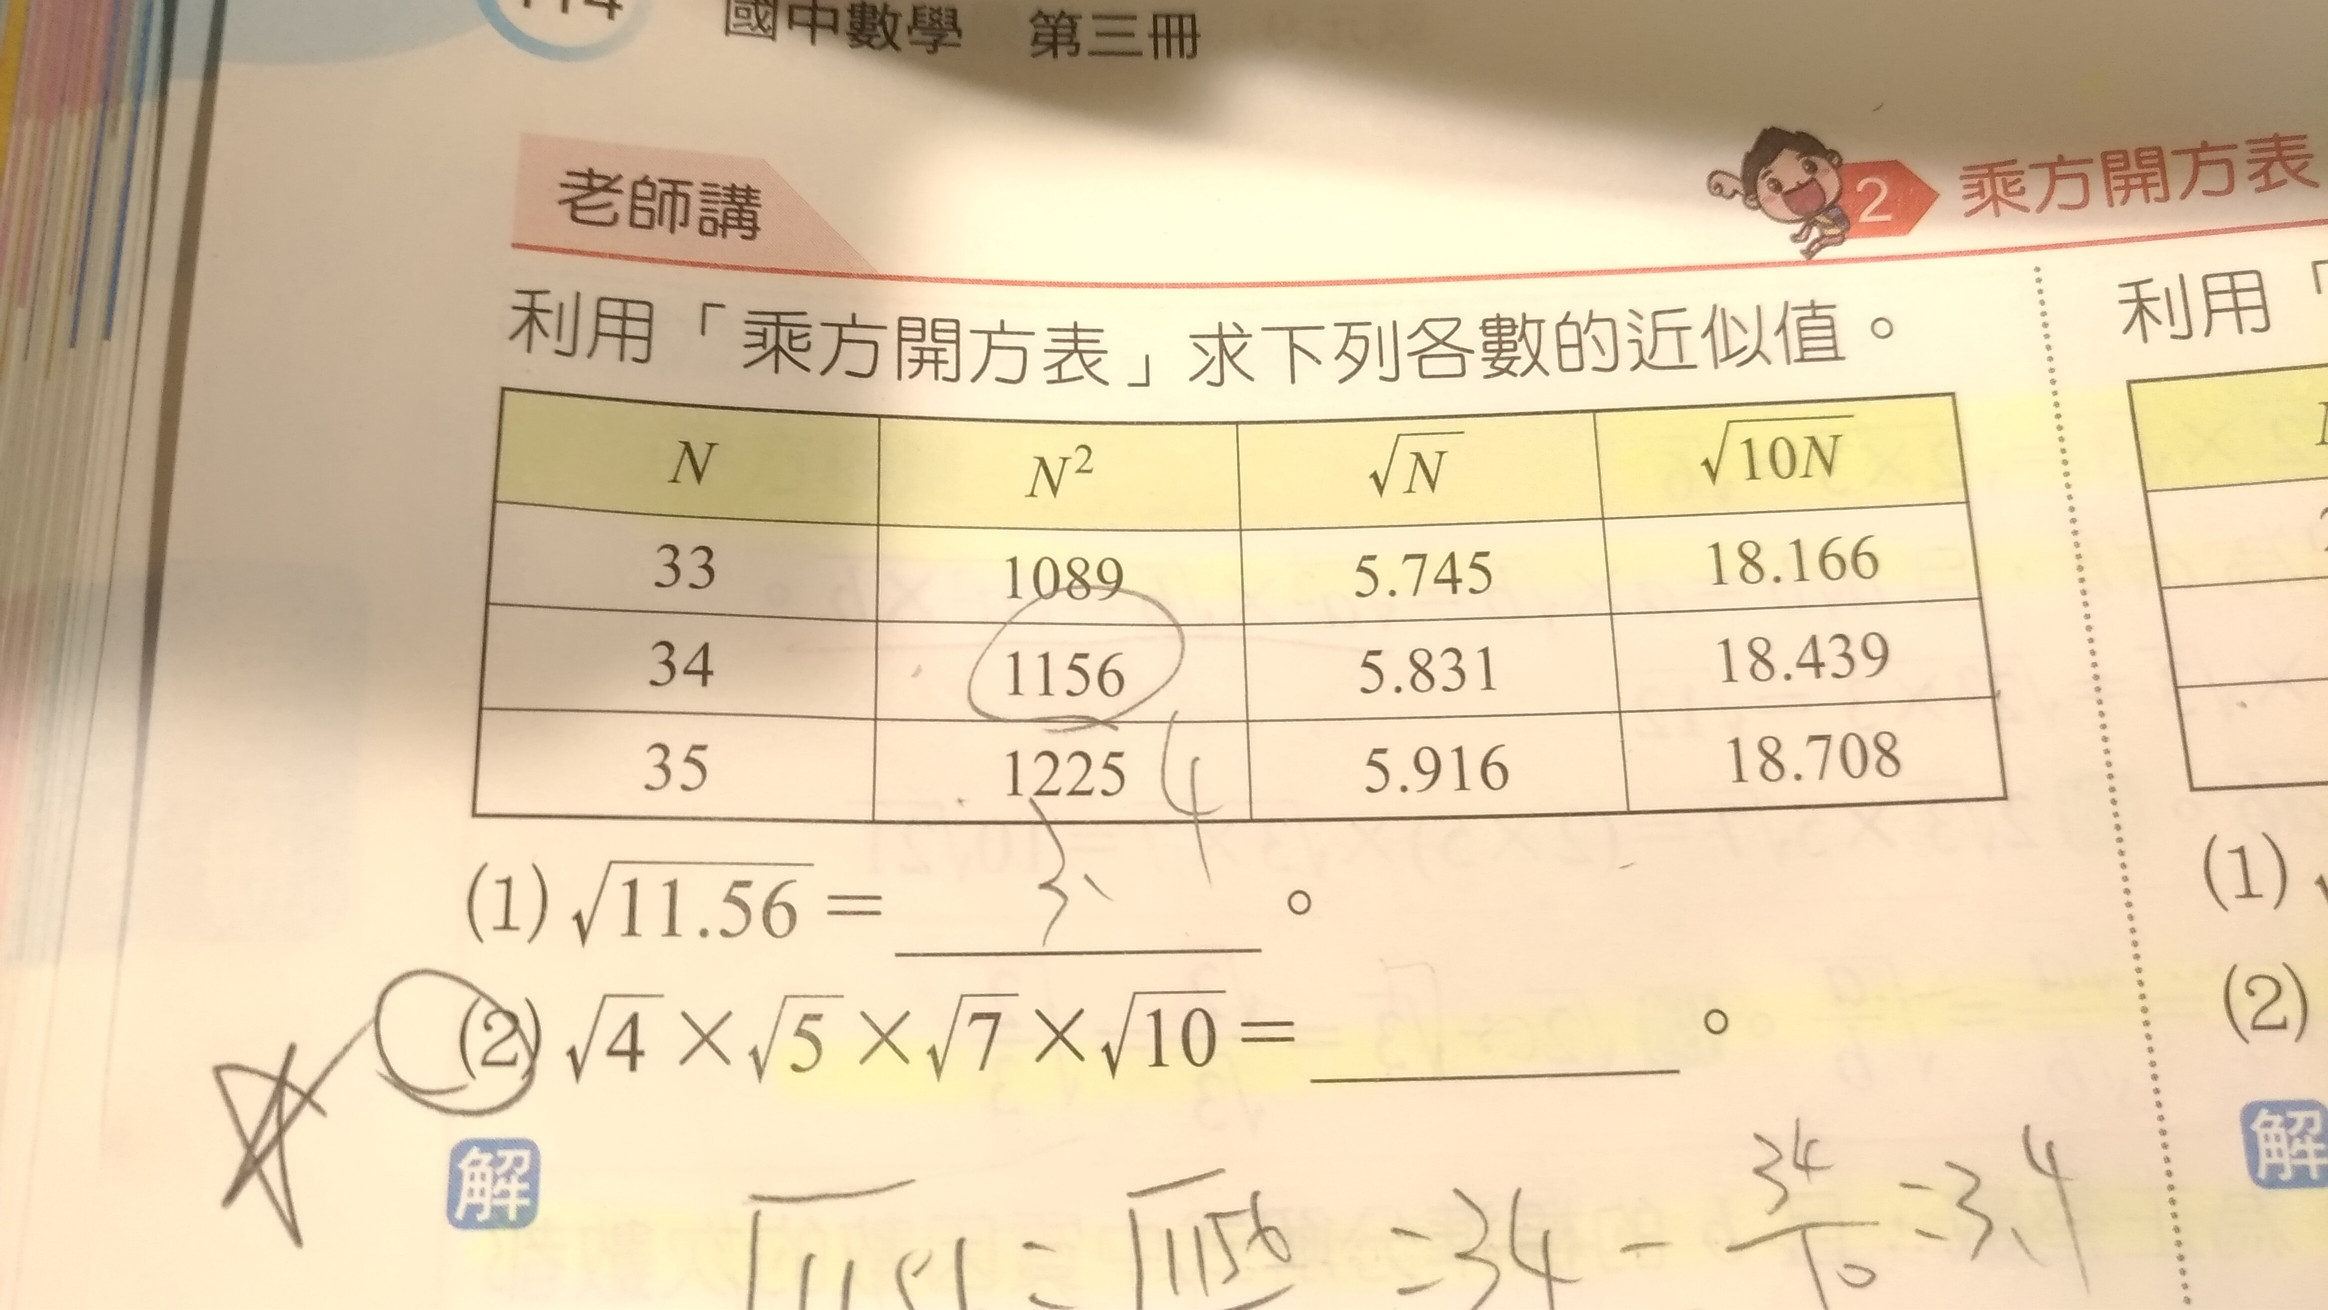 114
國中數學 第三冊
老師講
2 乘方開方表
利用「乘方開方表」求下列各數的近似值。
利用「
N N² √N √10N
33 1089 5.745 18.166
34 1156 5.831 18.439
35 1225 5.916 18.708
(1) √11.56 = 3.4 。
(1)
(2) √4 × √5 × √7 × √10 = 。
(2)
解
解
= √1156 = 34 - 34/10 = 3.4